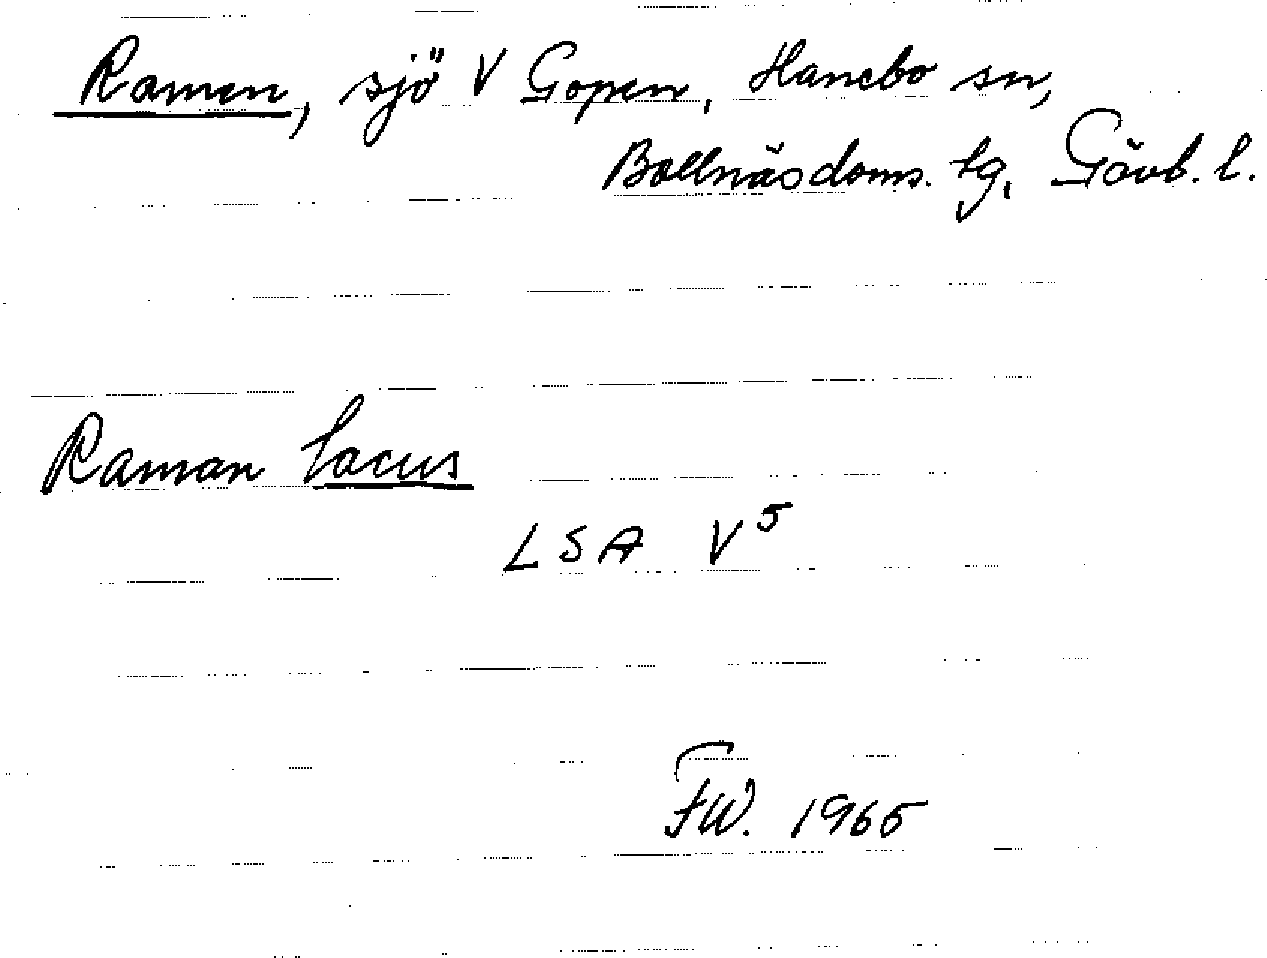 Ramen, sjö V Gopen, Hanebo sn,
Bollnäs doms. tg, Gävb. l.
Raman lacus
LSA V5
FW. 1965